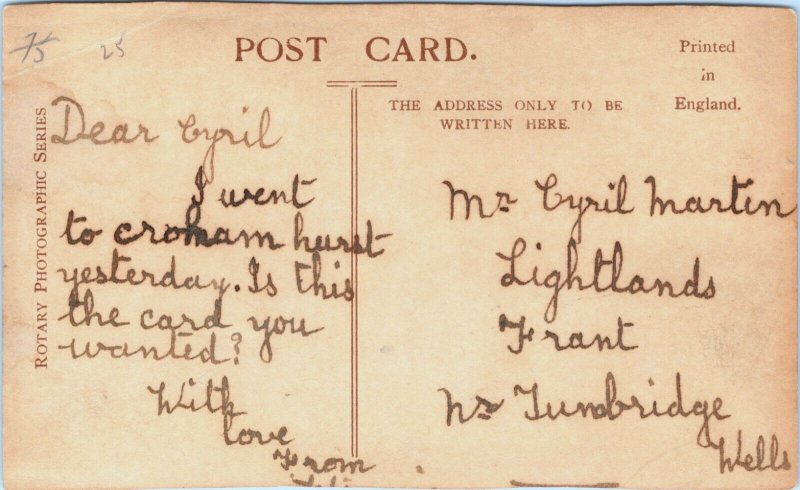 75
25
POST CARD.
Printed
in
England.
THE ADDRESS ONLY TO BE
WRITTEN HERE.
ROTARY PHOTOGRAPHIC SERIES
Dear Cyril
I went
to croham hurst
yesterday. Is this
the card you
wanted?
With
love
From
Mr Cyril Martin
Lightlands
Frant
Nr Tunbridge
Wells